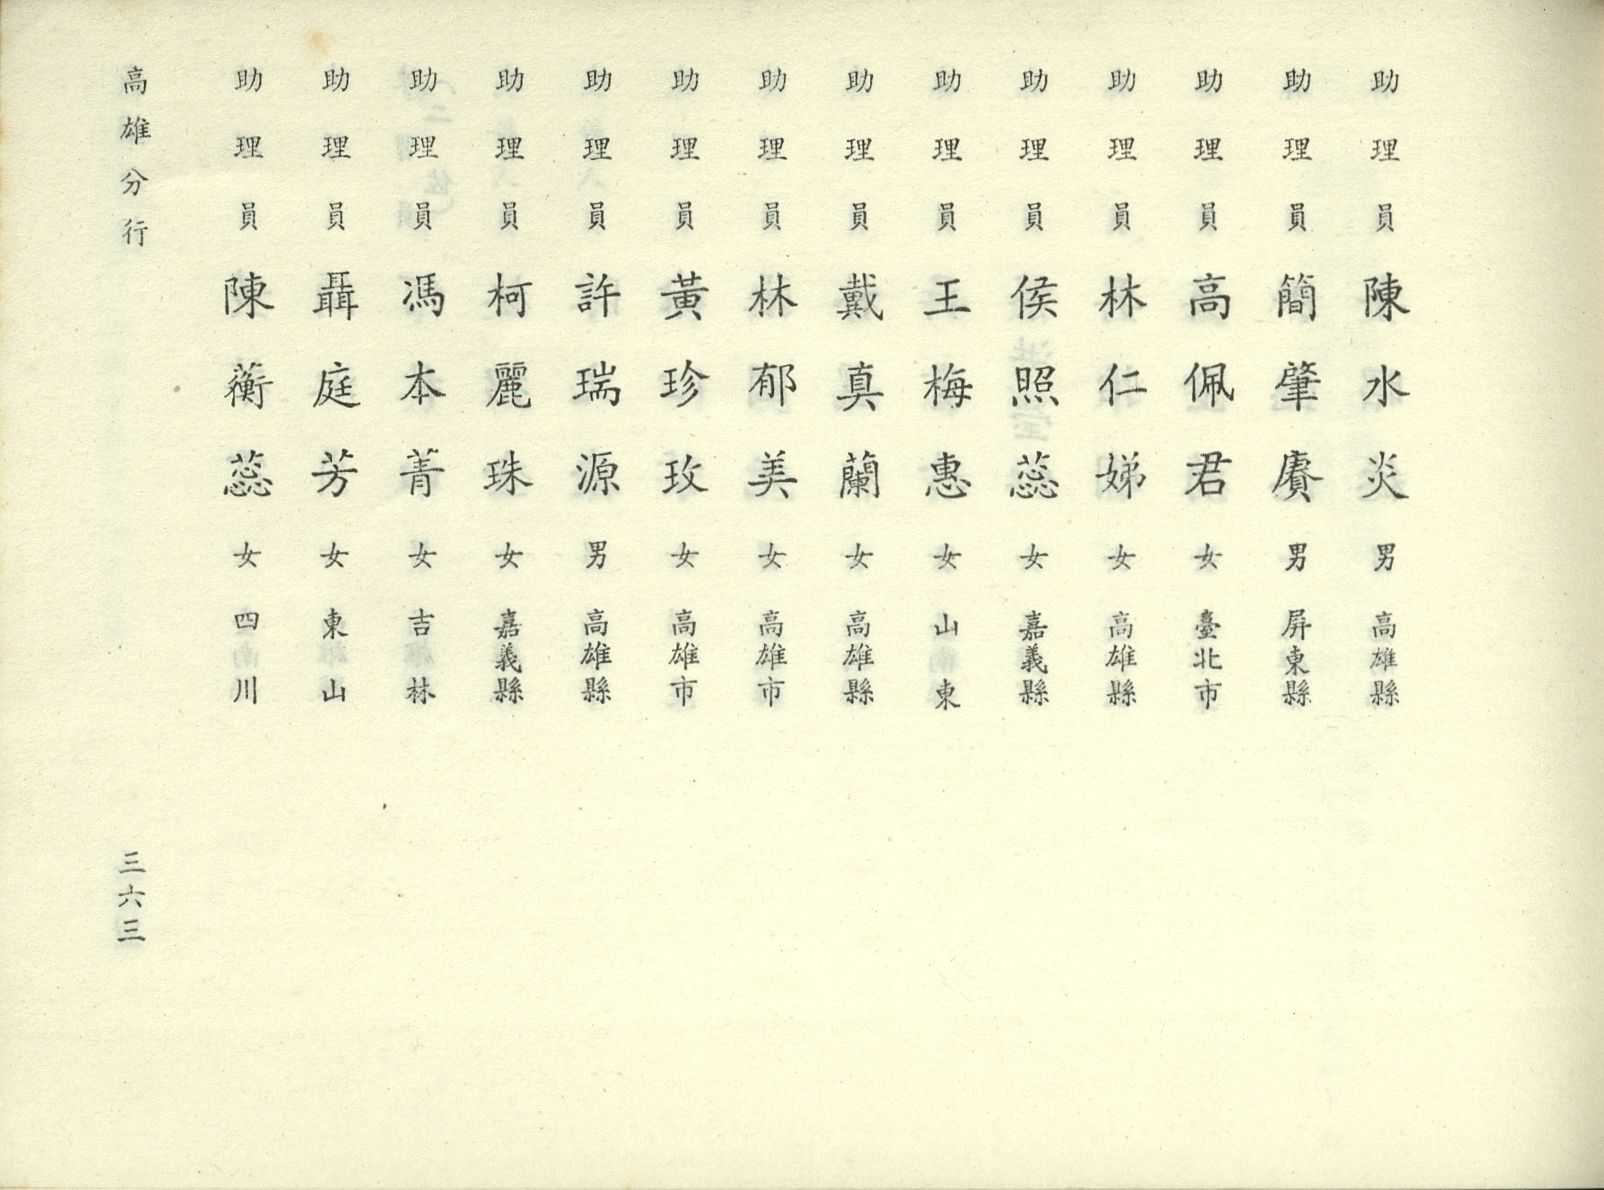 助理員 陳水炎 男 高雄縣
助理員 簡肇賡 男 屏東縣
助理員 高佩君 女 臺北市
助理員 林仁娣 女 高雄縣
助理員 侯照蕊 女 嘉義縣
助理員 王梅惠 女 山東
助理員 戴真蘭 女 高雄縣
助理員 林郁美 女 高雄市
助理員 黃珍玫 女 高雄市
助理員 許瑞源 男 高雄縣
助理員 柯麗珠 女 嘉義縣
助理員 馮本菁 女 吉林
助理員 聶庭芳 女 東山
助理員 陳蘅蕊 女 四川
高雄分行
三六三